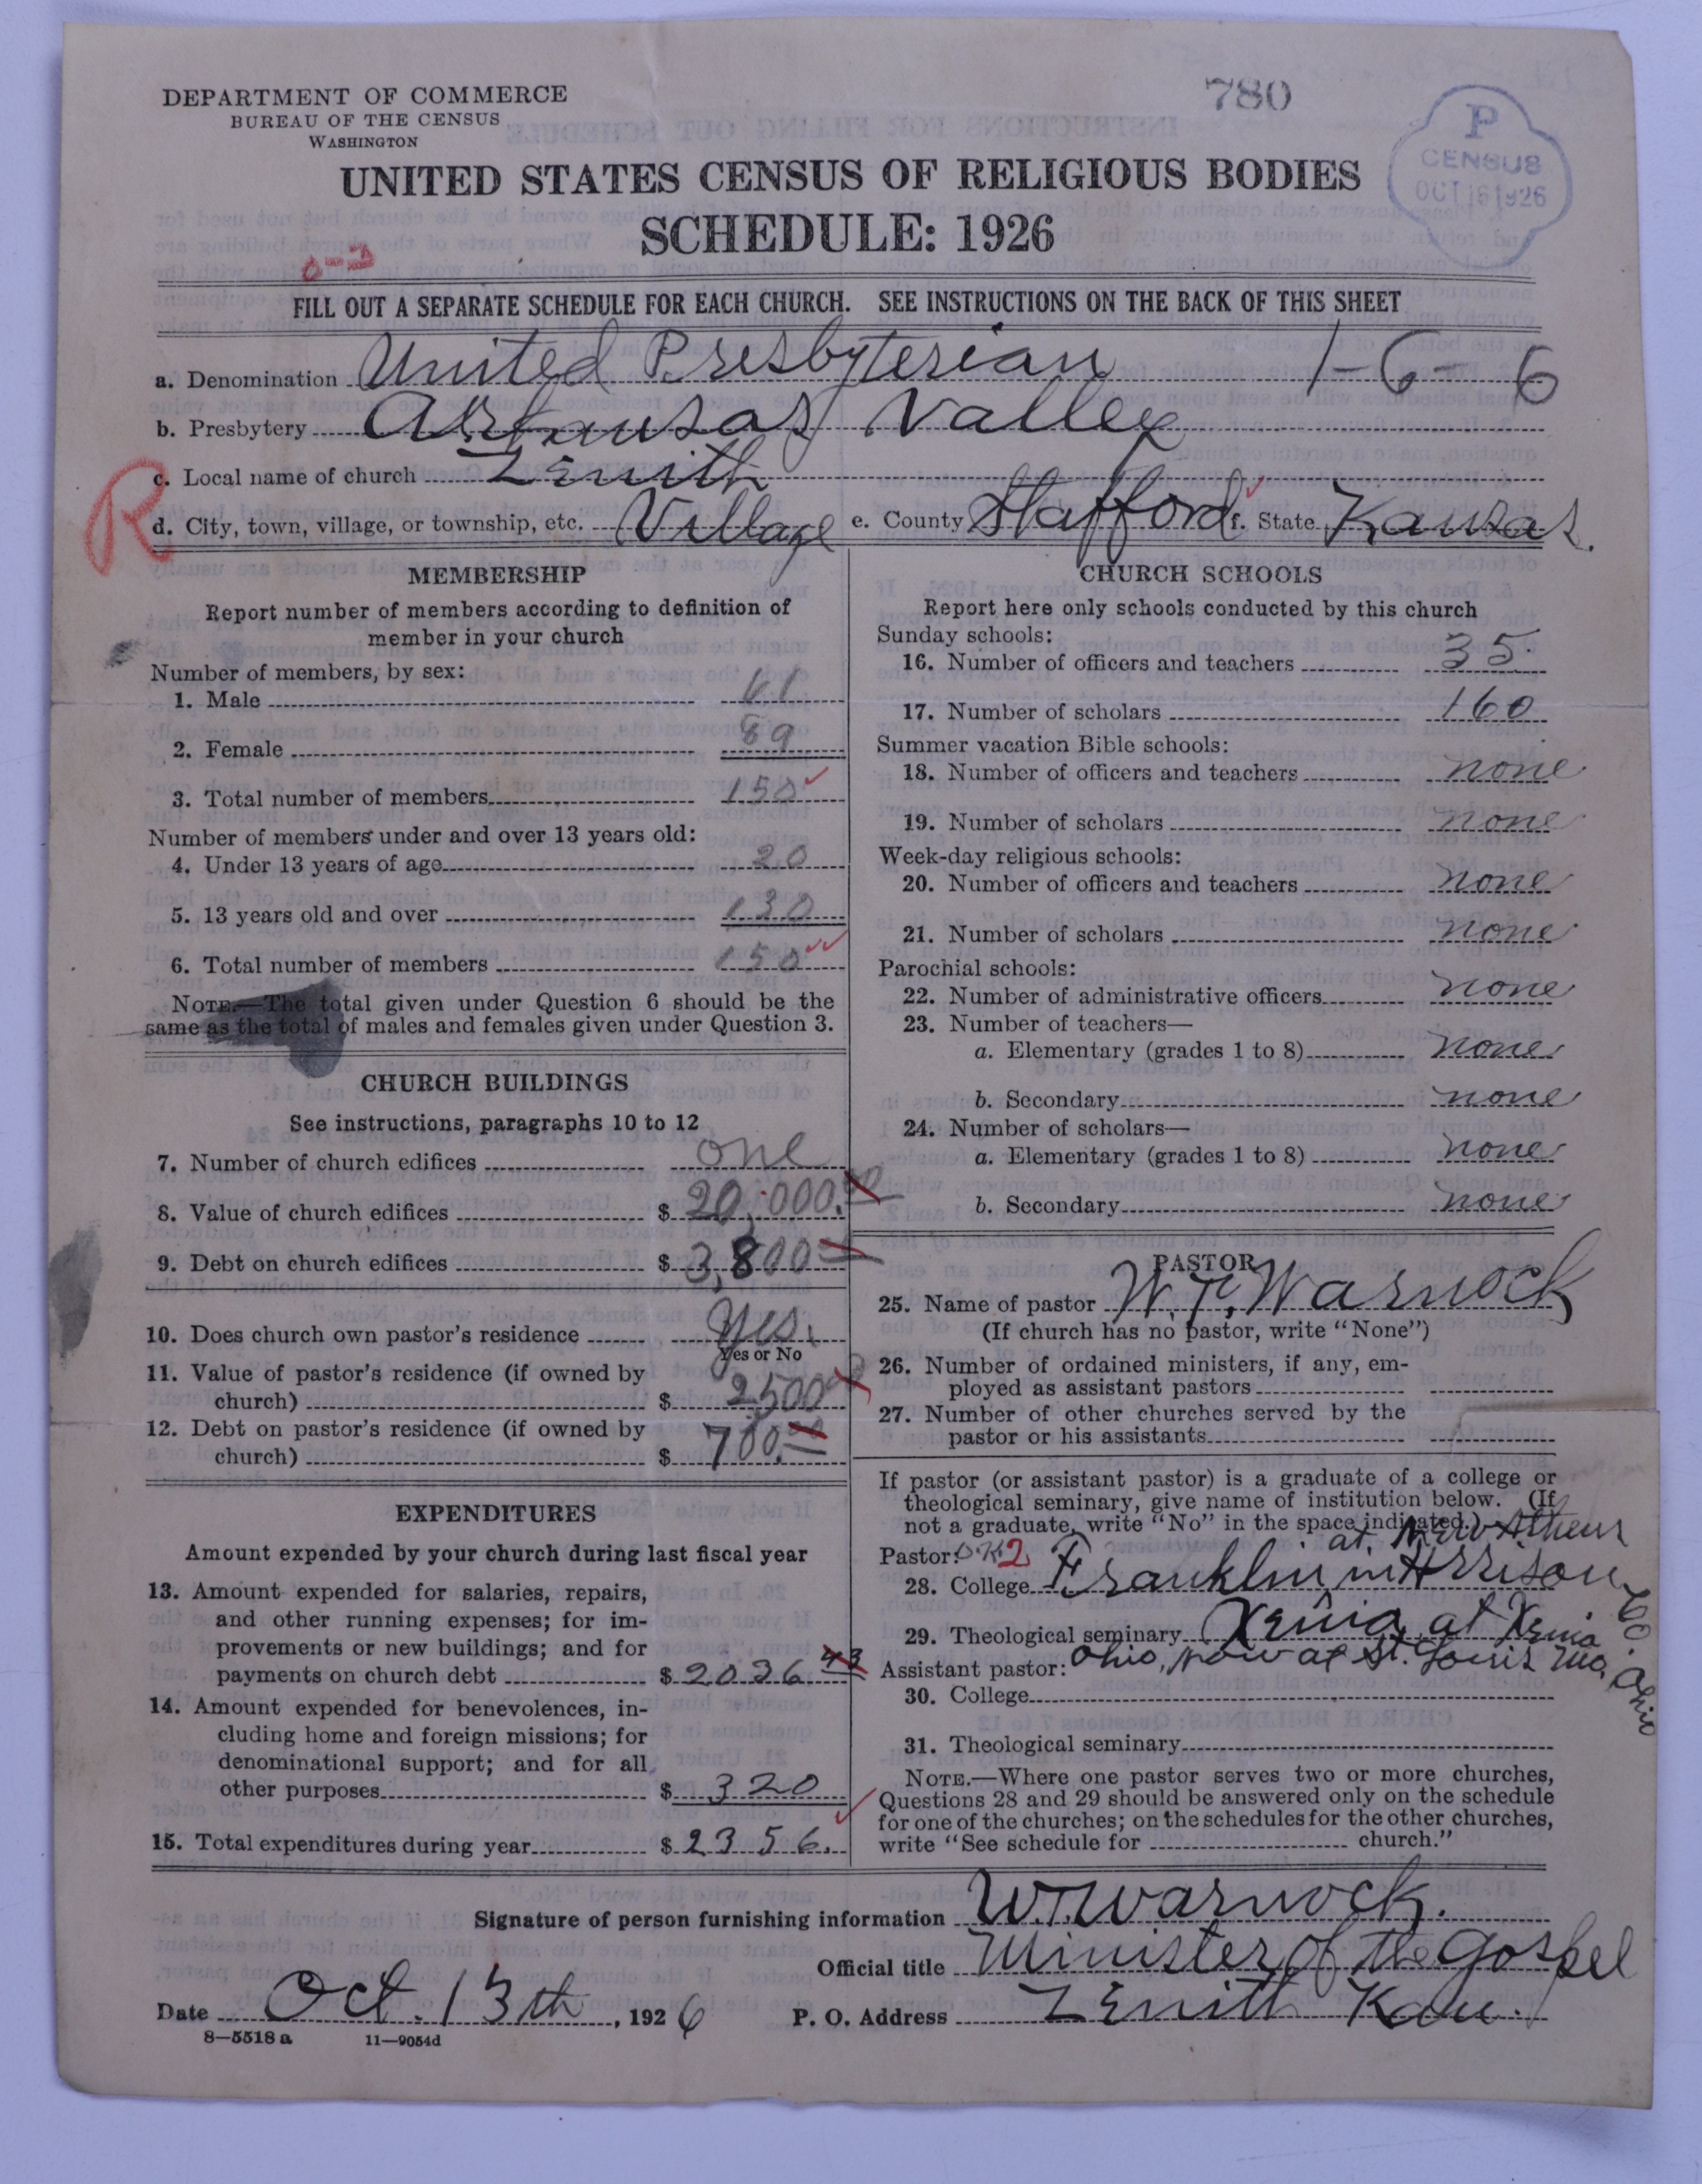 DEPARTMENT OF COMMERCE
BUREAU OF THE CENSUS
WASHINGTON
780
P
CENSUS
OCT 16 1926
UNITED STATES CENSUS OF RELIGIOUS BODIES
SCHEDULE: 1926
FILL OUT A SEPARATE SCHEDULE FOR EACH CHURCH. SEE INSTRUCTIONS ON THE BACK OF THIS SHEET
a. Denomination United Presbyterian 1-6-6
b. Presbytery Arkansas Valley
R
c. Local name of church Zenith
d. City, town, village, or township, etc. Village e. County Stafford f. State Kansas.
MEMBERSHIP
Report number of members according to definition of
member in your church
Number of members, by sex:
1. Male 61
2. Female 89
3. Total number of members 150
Number of members under and over 13 years old:
4. Under 13 years of age 20
5. 13 years old and over 130
6. Total number of members 150
NOTE.—The total given under Question 6 should be the
same as the total of males and females given under Question 3.
CHURCH BUILDINGS
See instructions, paragraphs 10 to 12
7. Number of church edifices one
8. Value of church edifices $ 20,000.00
9. Debt on church edifices $ 3,800
10. Does church own pastor's residence Yes.
Yes or No
11. Value of pastor's residence (if owned by
church) $ 2500
12. Debt on pastor's residence (if owned by
church) $ 700.00
EXPENDITURES
Amount expended by your church during last fiscal year
13. Amount expended for salaries, repairs,
and other running expenses; for im-
provements or new buildings; and for
payments on church debt $ 2036 43
14. Amount expended for benevolences, in-
cluding home and foreign missions; for
denominational support; and for all
other purposes $ 320
15. Total expenditures during year $ 2356.
CHURCH SCHOOLS
Report here only schools conducted by this church
Sunday schools:
16. Number of officers and teachers 35
17. Number of scholars 160
Summer vacation Bible schools:
18. Number of officers and teachers none
19. Number of scholars none
Week-day religious schools:
20. Number of officers and teachers none
21. Number of scholars none
Parochial schools:
22. Number of administrative officers none
23. Number of teachers—
a. Elementary (grades 1 to 8) none
b. Secondary none
24. Number of scholars—
a. Elementary (grades 1 to 8) none
b. Secondary none
PASTOR
25. Name of pastor W. T. Warnock
(If church has no pastor, write "None")
26. Number of ordained ministers, if any, em-
ployed as assistant pastors
27. Number of other churches served by the
pastor or his assistants
If pastor (or assistant pastor) is a graduate of a college or
theological seminary, give name of institution below. (If
not a graduate, write "No" in the space indicated.)
at New Athens
Pastor: O.K. 2
28. College Franklin in Hrrison Co. Ohio
29. Theological seminary Xenia at Xenia
Assistant pastor: Ohio, now at St. Louis Mo.
30. College
31. Theological seminary
NOTE.—Where one pastor serves two or more churches,
Questions 28 and 29 should be answered only on the schedule
for one of the churches; on the schedules for the other churches,
write "See schedule for church."
Signature of person furnishing information W.T. Warnock.
Official title Minister of the Gospel
Date Oct. 13th, 1926 P. O. Address Zenith Kan.
8—5518 a 11—9054d